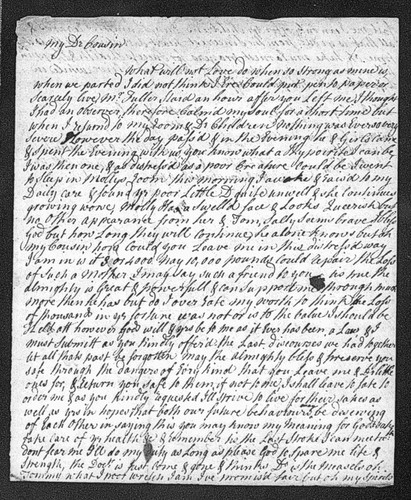 My Dr Cousin
What will not Love do when so strong as mine is
when we parted I did not think I ere could put pen to paper or
Scarcely live, Mr. Fuller Staid an hour after you Left me, I thought
I had an observer, therefore Calmd my Soul for a Short time but
when I returnd to my room & Dr Children, nothing was Ever so very
Severe However the day pass'd in the Evening he &
& Spent the Evening with us, you know what a Hypocrite I can be
I was then one, & as as a poor Creature Could be I went
to sleep in Molly Room this morning I awoke & raisd to my
Daily care & found yr poor Little D quite unwell & she Continues
growing worse, Molly Has a swelld face & Looks Queerish but
no other appearance from her & Tom, Sally Sams brave, bless
God but how Long they will Continue, he alone knows but oh
my Cousin how Could you Leave me in this distress'd way
I am in is it or 4000 nay 10,000 pounds could repair the Loss
of Such a Mother I may say such a friend to you is true the
almighty is Great & powerfull & can Support me through much
more then he has but do I over rate my worth to think the Loss
of thousands in yr fortune was not or is to the value I should be
to all however God will & yrs be to me as it Ever has been, a Law & I
must Submitt as you kindly offerd the Last discourses we had together
let all thats past be forgotten may the almighty bless & preserve you
safe through the dangers of Every kind that you Leave me & yr little
ones for, & return you safe to them, if not to me, I shall have to fate to
order me & as you kindly requested I'll strive to live for their sakes as
well as yrs in hopes that both our future behaviours be
of Each other in saying this you may know my Meaning for Gods sake
take care of yr health & remember tis the Last Stroke I can meet
dont fear me I'll do my Duty as Long as please God to spare me life &
Strength, the Doct is just come & gone & thinks Ds is the Measels oh
Cousin what a poor wretch I am I've promis'd fair but oh my Spirits